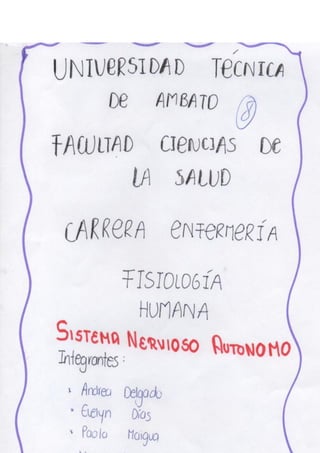 UNIVERSIDAD TÉCNICA
DE AMBATO
8
FACULTAD CIENCIAS DE
LA SALUD
CARRERA ENFERMERÍA
FISIOLOGÍA
HUMANA
SISTEMA NERVIOSO AUTONOMO
Integrantes:
* Andrea Delgado
* Evelyn Días
* Paola Maigua